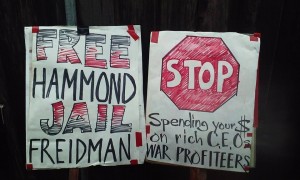 FREE
HAMMOND
JAIL
FREIDMAN
STOP
Spending your $
on rich C.E.O.s
WAR PROFITEERS